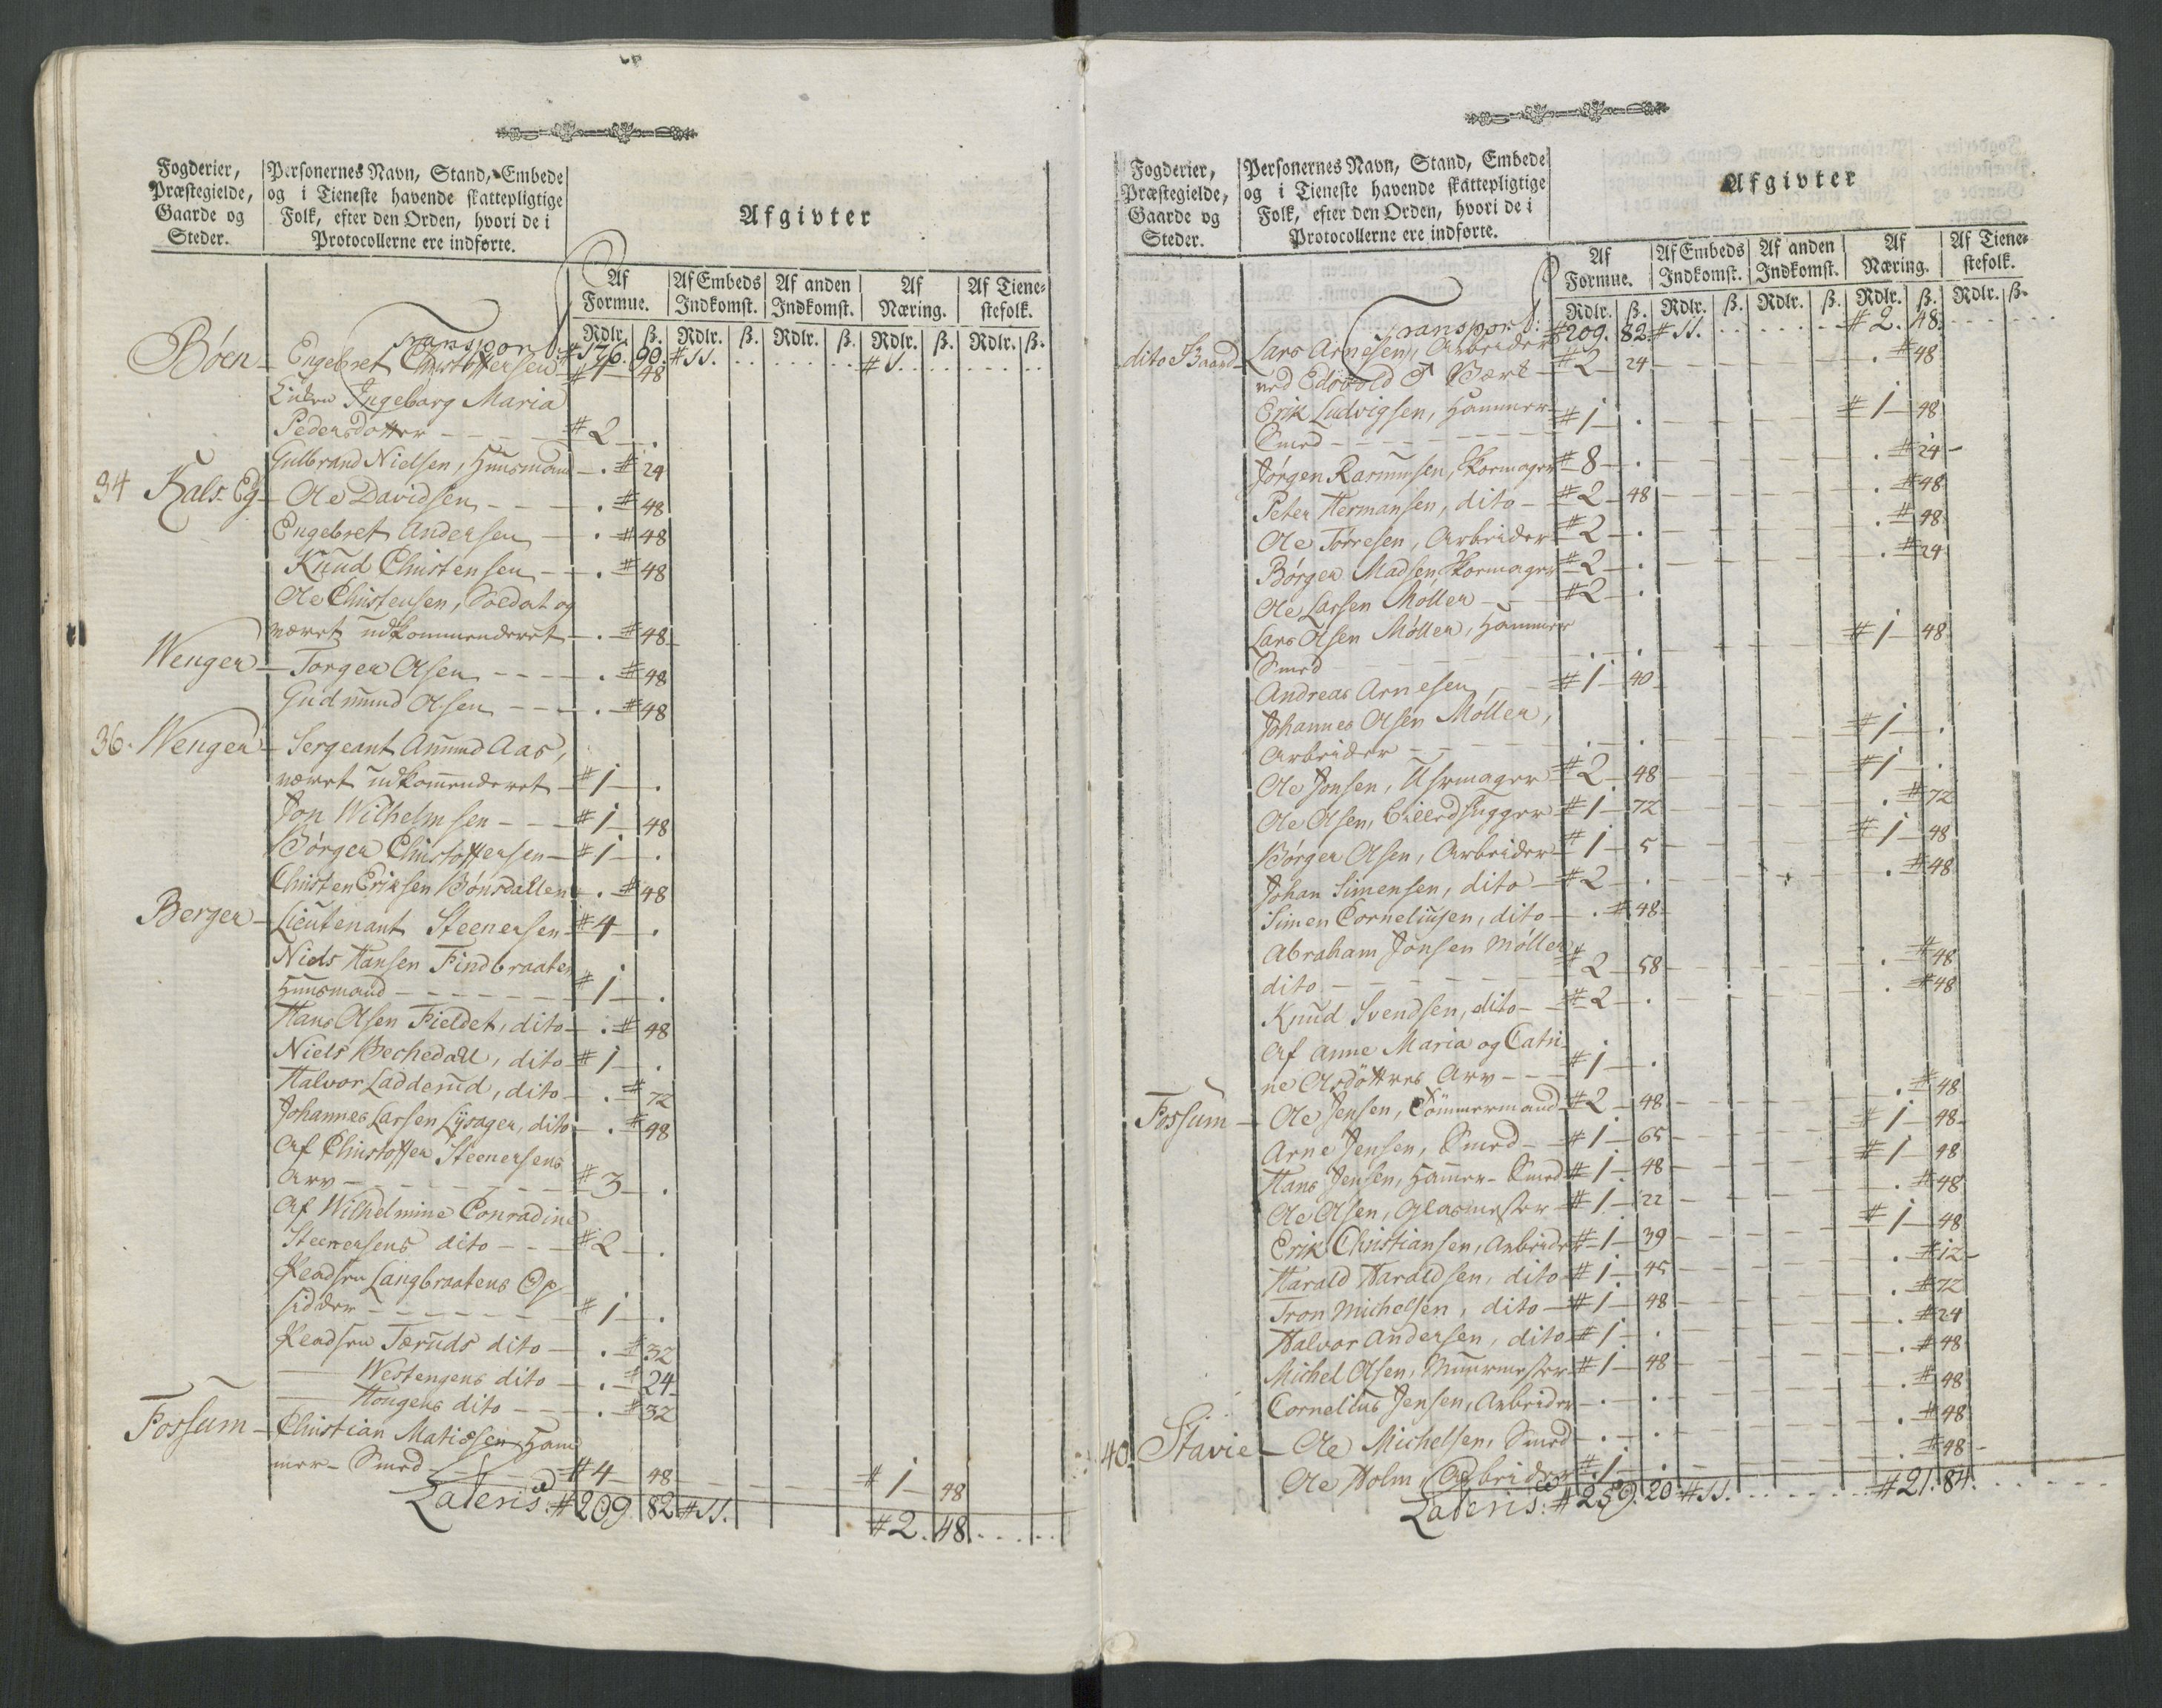 Fogderier, Præstegielde, Gaarde og Steder.
Personernes Navn, Stand, Embede og i Tieneste havende skattepligtige Folk, efter den Orden, hvori de i Protocollerne ere indførte.
Afgivter
Af Formue. Af Embeds Indkomst. Af anden Indkomst. Af Næring. Af Tienestefolk.
Rdlr. ß. Rdlr. ß. Rdlr. ß. Rdlr. ß. Rdlr. ß.
Transport # 176. 90. # 11. # 1.
Bøen - Engebret Christoffersen # 1 - 48
Enken Ingeborg Maria
Pedersdatter - # 2 - .
Gulbrand Nielsen, Huusmand - . # 24
34 Kals. Eg - Ole Davidsen - . # 48
Engebret Andersen - . # 48
Knud Christensen - . # 48
Ole Christensen, Soldat og
været udkommenderet - . # 48
Wengen - Torger Olsen - . # 48
Gudmund Olsen - . # 48
36. Wengen - Sergeant Amund Aas,
været udkommenderet - # 1 - .
Jon Wilhelmsen - # 1 - 48
Børger Christoffersen - # 1 - .
Christen Eriksen Bønsdallen - . # 48
Berger - Lieutenant Steenersen # 4 - .
Niels Hansen Findbraaten
Huusmand - # 1 - .
Hans Olsen Fieldet, dito - . # 48
Niels Bechedall, dito # 1 - .
Halvor Ladderud, dito - . # 72
Johannes Larsen Lysager, dito - . # 48
Af Christoffer Steenersens
Arv - # 3 - .
Af Wilhelmine Conradine
Steenersens dito - # 2 - .
Pladsen Langbraatens Op
sidder - # 1 - .
Pladsen Tæruds dito - . # 32
Westengens dito - . # 24
Hougens dito - . # 32
Fossum - Christian Matissen Ham
mer-Smed - # 4 - 48 # 1 - 48
Lateris # 209. 82 # 11. # 2. 48.
Fogderier, Præstegielde, Gaarde og Steder.
Personernes Navn, Stand, Embede og i Tieneste havende skattepligtige Folk, efter den Orden, hvori de i Protocollerne ere indførte.
Afgivter
Af Formue. Af Embeds Indkomst. Af anden Indkomst. Af Næring. Af Tienestefolk.
Rdlr. ß. Rdlr. ß. Rdlr. ß. Rdlr. ß. Rdlr. ß.
Transport: # 209. 82. # 11. # 2. 48.
dito - Lars Arnesen, Arbeider
ved Edsvold Værk - # 2 - 24 . # 48
Erik Ludvigsen, Hammer-
Smed - # 1 - . # 1 - 48
Jørgen Rasmussen, Skomager # 8 - . . # 24
Peter Hermansen, dito - # 2 - 48 . # 48
Ole Torresen, Arbeider # 2 - . . # 48
Børger Madsen Skomager # 2 - . . # 24
Ole Larsen Møller - # 2 - .
Lars Olsen Møller, Hammer
Smed . . # 1 - 48
Andreas Arnesen - # 1 - 40
Johannes Olsen Møller,
Arbeider - . . # 1 - .
Ole Jonsen, Uhrmager # 2 - 48 # 1 - .
Ole Olsen, # 1 - 72 . # 72
Børger Olsen, Arbeider # 1 - 5 # 1 - 48
Johan Simensen, dito - # 2 - . . # 48
Simen Corneliusen, dito - . # 48
Abraham Jonsen Møller
dito - # 2 - 58 . # 48
Knud Svendsen, dito - # 2 - . . # 48
Af Anne Maria og Catri
ne Arv - # 1 - .
Fossum - Ole Jensen, Tømmermand # 2 - 48 . # 48
Arne Jensen, Smed - # 1 - 65 # 1 - 48
Hans Jensen, Hammer-Smed # 1 - 48 # 1 - 48
Ole Olsen, Glasmester # 1 - 22 . # 48
Erik Christiansen, Arbeider # 1 - 39 # 1 - 48
Harald Haraldsen, dito # 1 - 45 . # 12
Tron Michelsen, dito - # 1 - 48 . # 72
Halvor Andersen, dito # 1 - . . # 24
Michel Olsen, Muurmester # 1 - 48 . # 48
Cornelius Jensen, Arbeider - . . . # 48
40. Stavie - Ole Michelsen, Smed - . . . # 48
Ole Holm, Arbeider # 1 - . . # 48
Lateris: # 259. 20 # 11. # 21. 84.